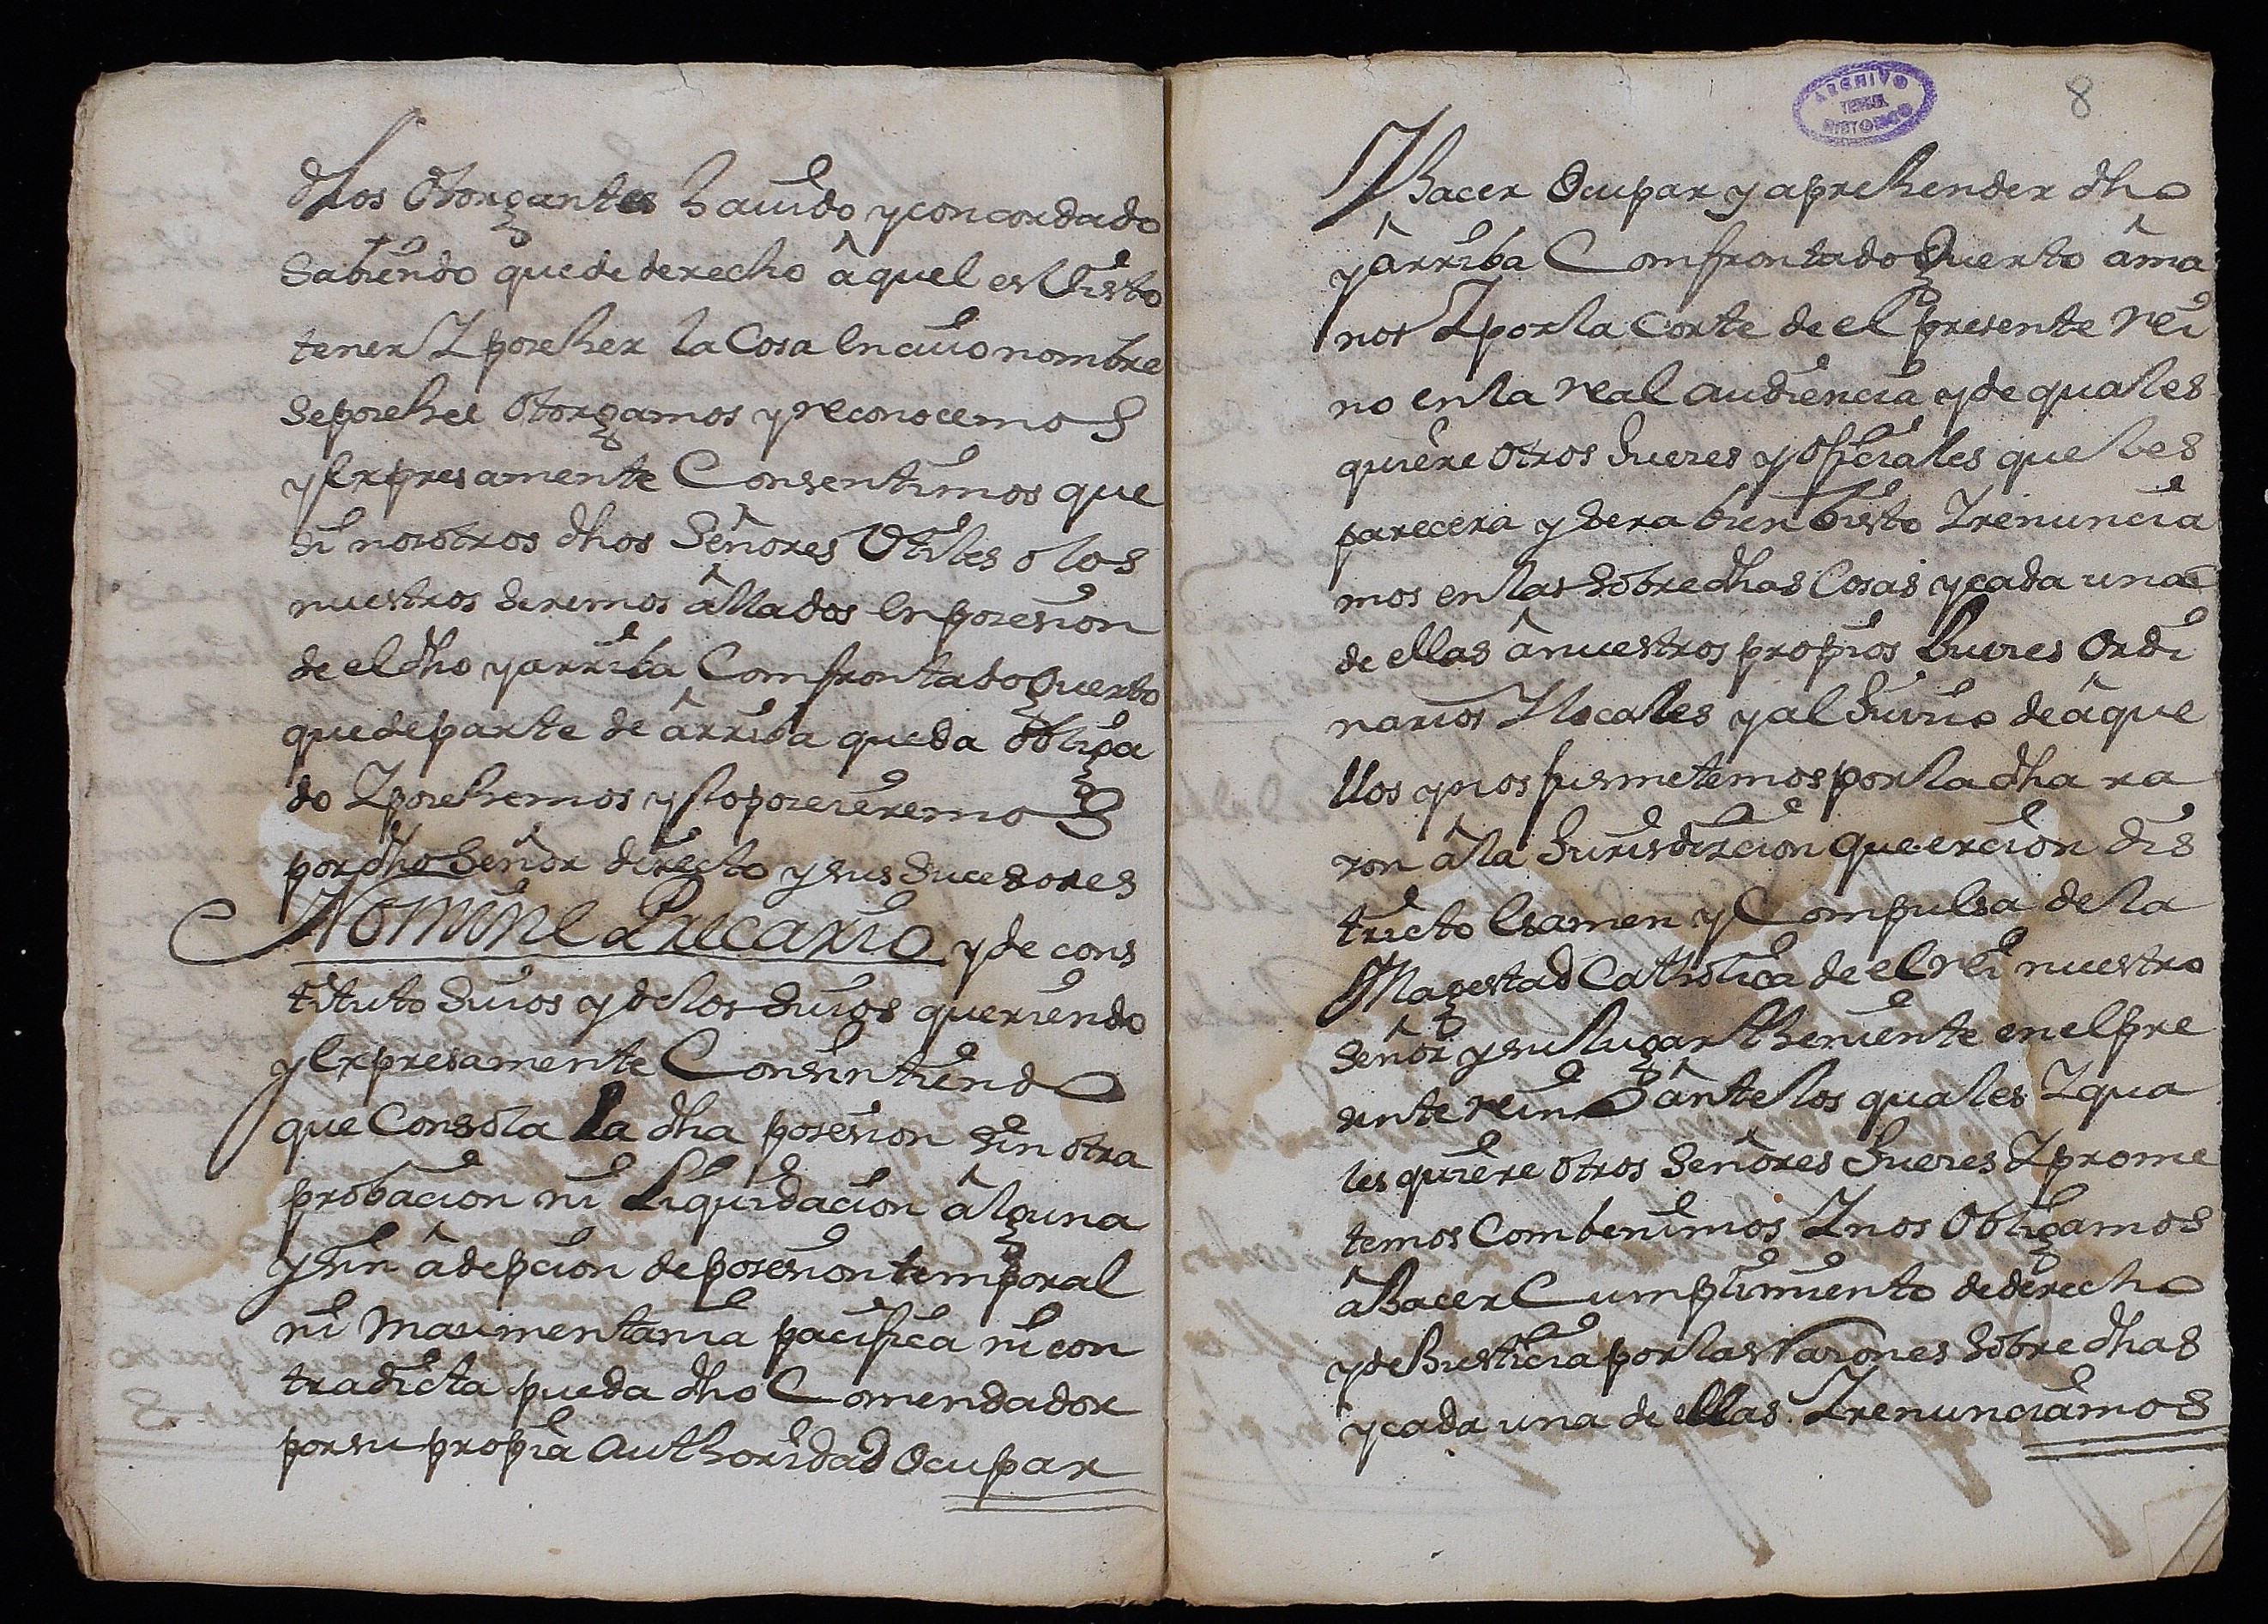 dhos Otorgantes hauido y concordado
Sabiendo que de derecho â quel es Visto
tener Y poseher la Cosa en cuio nombre
se posehee Otorgamos y reconocemos
y Expresamente Consentimos que
si nosotros dhos Señores Vtiles o los
nuestros seremos âllados en posesion
de el dho y arriba Comfrontado Guerto
que de parte de ârriba queda obliga
do Y posehemos y lo poseieremos
por dho Señor directo y sus sucesores
Nomine Precario y de cons
tituto suios y de los suios queriendo
y Expresamente Consintiendo
que Con sola la dha posesion sin otra
probacion ni Liquidacion âlguna
y sin âdepcion de posesion temporal
ni Momentania pacifica ni con
tradicta pueda dho Comendador
por su propia Authoridad Ocupar
ARCHIVO
HISTORICO
8
Y hacer Ocupar y aprehender dho
y ârriba Comfrontado Guerto âma
nos Y por la Corte de el presente rei
no en la real audiencia y de quales
quiere otros Jueces y Oficiales que les
parecera y sera bien bisto Y renuncia
mos en las sobredhas Cosas y cada una
de ellas ânuestros propios Jueces Ordi
narios Y locales y al Juicio de âque
llos y nos susmetemos por la dha ra
zon â la Jurisdiccion Quoercion dis
tricto Esamen y Compulsa de la
Magestad Catholica de el rei nuestro
señor y su lugar theniente en el pre
sente reino ânte los quales Y qua
les quiere otros Señores Jueces Y prome
temos Combenimos Y nos Obligamos
â hacer Cumplimiento de derecho
y de Justicia por las raçones sobredhas
y cada una de ellas. Y renunciamos